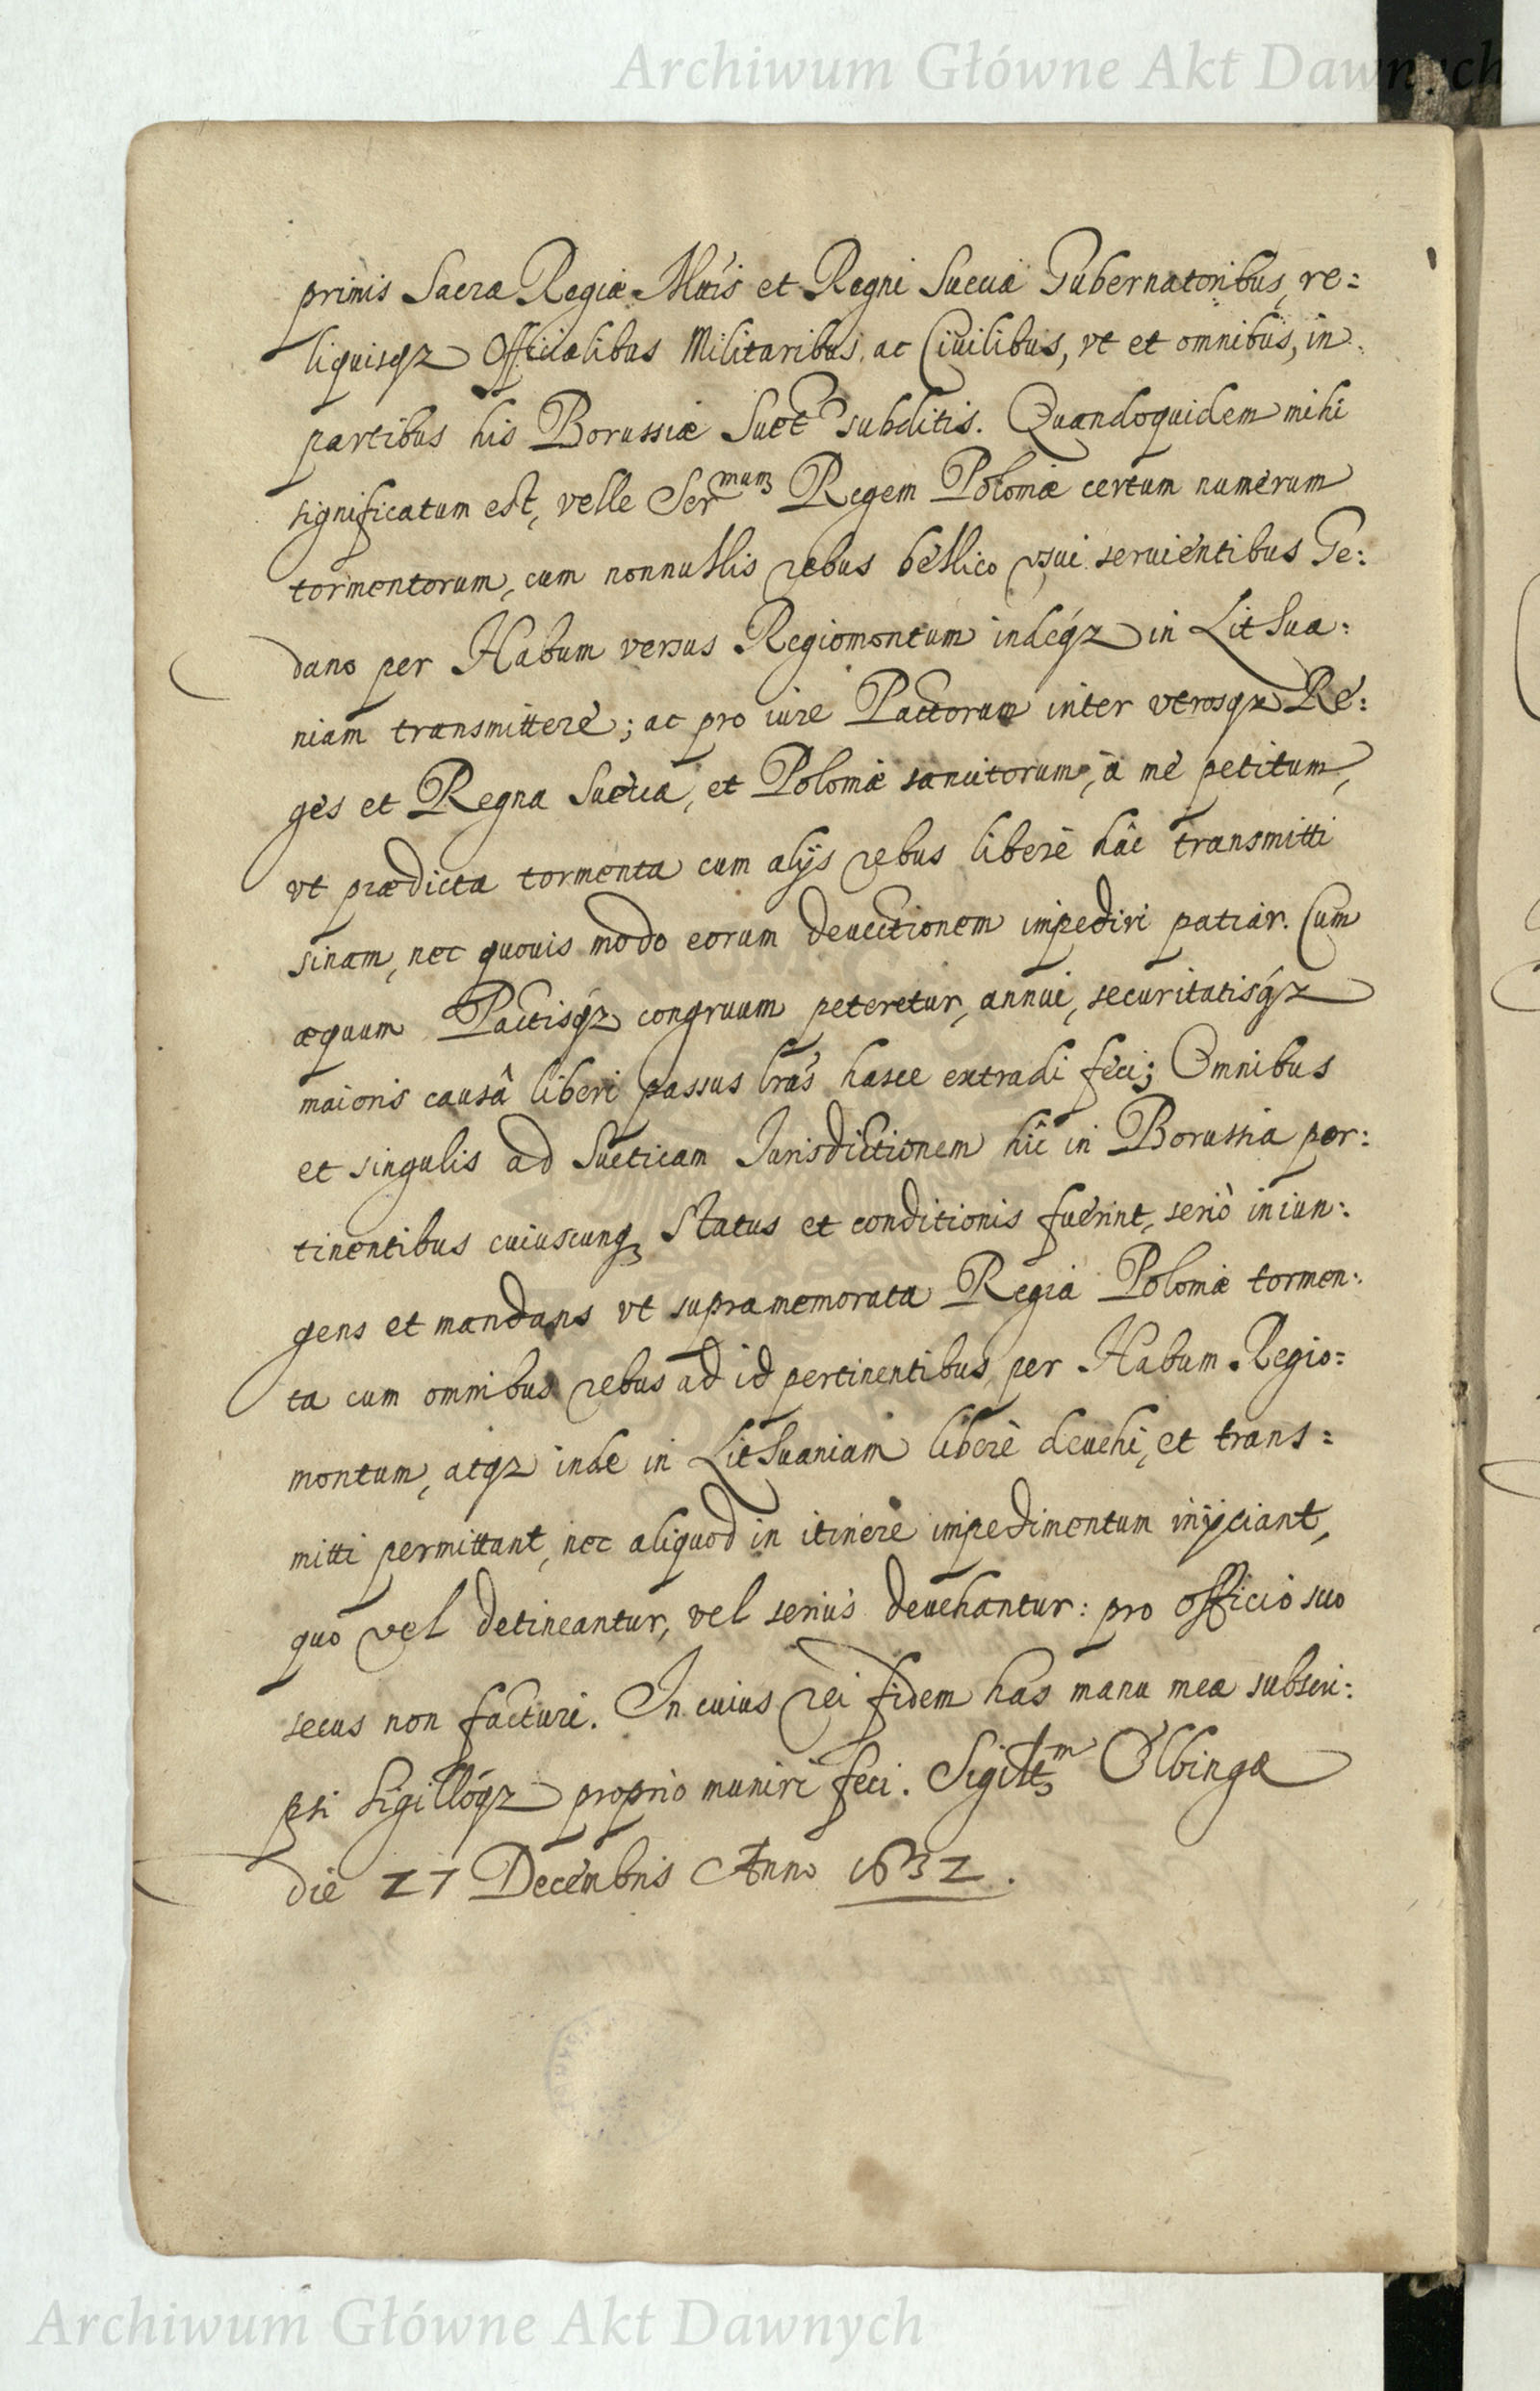 Archiwum Główne Akt Dawnych
primis Sacræ Regiæ Mtis et Regni Sueciæ Gubernatoribus, re:
liquisqz Officialibus Militaribus, ac Ciuilibus, vt et omnibus, in
partibus his Borussiæ subditis. Quandoquidem mihi
significatum est, velle Sermum Regem Poloniæ certum numerum
tormentorum, cum nonnullis rebus bellico vsui seruientibus Ge:
dano per Habum versus Regiomontum indeqz in Lithua:
niam transmittere; ac pro iure Pactorum inter vtrosqz Re:
ges et Regna Sueciæ, et Poloniæ sancitorum, à me petitum,
vt prædicta tormenta cum alijs rebus liberè hâc transmitti
sinam, nec quouis modo eorum deuectionem impediri patiar. Cum
æquum Pactisqz congruum peteretur, annui, securitatisqz
maioris causâ liberi passus lras hasce extradi feci; Omnibus
et singulis ad Sueticam Jurisdictionem hîc in Borussia per:
tinentibus cuiuscunqz status et conditionis fuerint, seriò iniun:
gens et mandans vt supra memorata Regia Poloniæ tormen:
ta cum omnibus rebus ad id pertinentibus, per Habum Regio:
montum, atqz inde in Lithuaniam liberè deuehi, et trans:
mitti permittant, nec aliquod in itinere impedimentum inijciant,
quo vel detineantur, vel seriùs deuehantur: pro officio suo
secus non facturi. In cuius rei fidem has manu mea subscri:
psi Sigilloqz proprio muniri feci. Elbingæ
die 27 Decembris Anno 1632.
Archiwum Główne Akt Dawnych